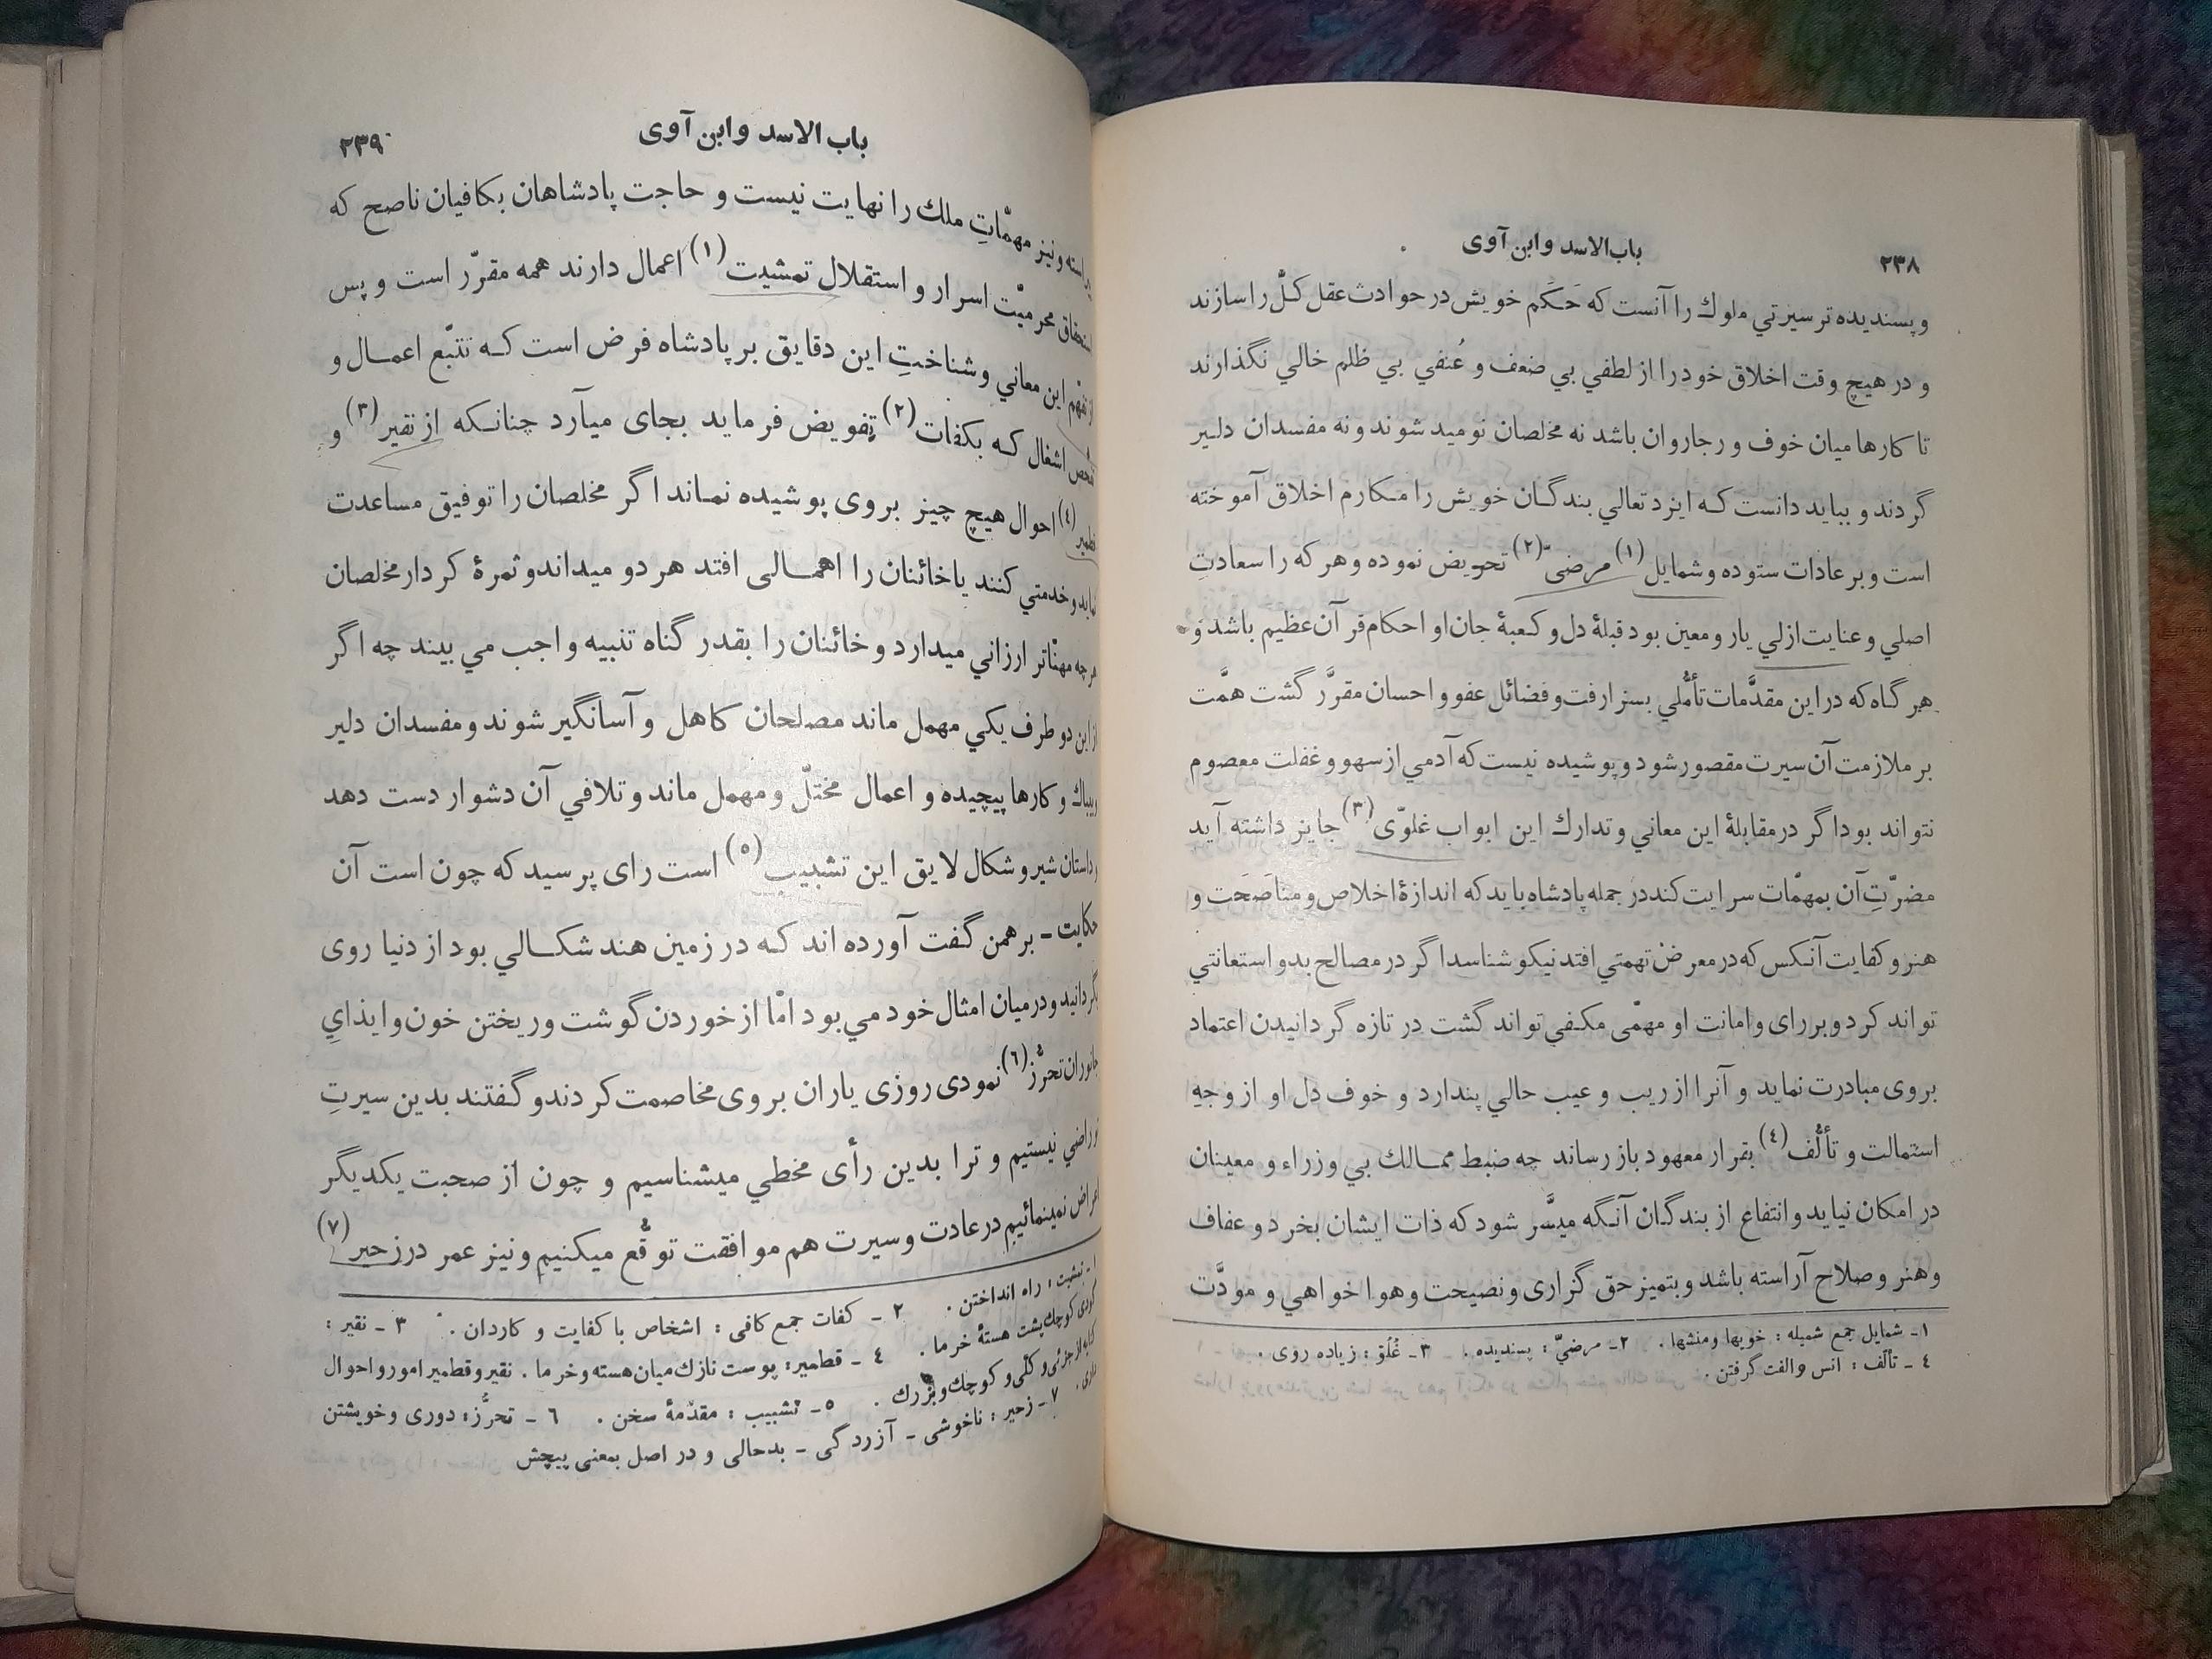 ۲۳۸
باب الاسد وابن آوی
و پسندیده تر سیرتي ملوك را آنست که حَکَم خویش در حوادث عقل کلّ را سازند
و در هیچ وقت اخلاق خود را از لطفي بي ضعف و عُنفي بي ظلم خالي نگذارند
تا کارها میان خوف و رجا روان باشد نه مخلصان نومید شوند و نه مفسدان دلیر
گردند و بباید دانست که ایزد تعالي بندگان خویش را مکارم اخلاق آموخته
است و بر عادات ستوده و شمایل (۱) مرضیّ (۲) تحریض نموده و هر که را سعادتِ
اصلي و عنایت ازلي یار و معین بود قبلهٔ دل و کعبهٔ جان او احکام قرآن عظیم باشد و
هر گاه که در این مقدَّمات تأمُّلي بسزا رفت و فضائل عفو و احسان مقرَّر گشت همَّت
بر ملازمت آن سیرت مقصور شود و پوشیده نیست که آدمي از سهو و غفلت معصوم
نتواند بود اگر در مقابلهٔ این معاني و تدارك این ابواب غلوّی (۳) جایز داشته آید
مضرّتِ آن بمهمّات سرایت کند در جمله پادشاه باید که اندازهٔ اخلاص و مناصَحَت و
هنر و کفایت آنکس که در معرض تهمتي افتد نیکو شناسد اگر در مصالح بدو استعانتي
تواند کرد و بر رای و امانت او مهمّی مکفي تواند گشت در تازه گردانیدن اعتماد
بروی مبادرت نماید و آنرا از ریب و عیب خالي پندارد و خوف دل او از وجهِ
استمالت و تألُّف (٤) بقرار معهود باز رساند چه ضبط ممالك بي وزراء و معینان
در امکان نیاید و انتفاع از بندگان آنگه میسَّر شود که ذات ایشان بخرد و عفاف
و هنر و صلاح آراسته باشد و بتمیز حق گزاری و نصیحت و هوا خواهي و مودَّت
۱- شمایل جمع شمیله : خویها و منشها . ۲- مرضيّ : پسندیده . ۳- غُلُوّ : زیاده روی .
٤ - تألّف : انس و الفت گرفتن .
باب الاسد وابن آوی
۲۳۹
و نیز مهمّاتِ ملك را نهایت نیست و حاجت پادشاهان بکافیان ناصح که
محرمیّت اسرار و استقلال تمشیت (۱) اعمال دارند همه مقرّر است و پس
این معاني و شناختِ این دقایق بر پادشاه فرض است که تتبّع اعمال و
اشغال که بکفات (۲) تفویض فرماید بجای میآرد چنانکه از نقیر (۳) و
قطمیر (٤) احوال هیچ چیز بروی پوشیده نماند اگر مخلصان را توفیق مساعدت
و خدمتي کنند یا خائنان را اهمالی افتد هر دو میداند و ثمرهٔ کردار مخلصان
هر چه مهنّاتر ارزاني میدارد و خائنان را بقدر گناه تنبیه واجب مي بیند چه اگر
از این دو طرف یکي مهمل ماند مصلحان کاهل و آسانگیر شوند و مفسدان دلیر
و کارها پیچیده و اعمال مختلّ و مهمل ماند و تلافي آن دشوار دست دهد
داستان شیر و شکال لایق این تشبیب (٥) است رای پرسید که چون است آن
حکایت - برهمن گفت آورده اند که در زمین هند شکالي بود از دنیا روی
بگردانید و در میان امثال خود مي بود امّا از خوردن گوشت و ریختن خون و ایذايِ
جانوران تحرُّز (٦) نمودی روزی یاران بروی مخاصمت کردند و گفتند بدین سیرتِ
راضي نیستیم و ترا بدین رأی مخطي میشناسیم و چون از صحبت یکدیگر
اعراض نمینمائیم در عادت و سیرت هم موافقت توقُّع میکنیم و نیز عمر در زحیر (۷)
۱- تمشیت : راه انداختن . ۲ - کفات جمع کافی : اشخاص با کفایت و کاردان . ۳ - نقیر :
گودی کوچك پشت هستهٔ خرما . ٤ - قطمیر : پوست نازك میان هسته و خرما . نقیر و قطمیر امور و احوال
از جزئی و کلّی و کوچك و بزرگ . ٥- تشبیب : مقدّمهٔ سخن . ٦ - تحرُّز : دوری و خویشتن
۷- زحیر : ناخوشی - آزردگی - بدحالی و در اصل بمعنی پیچش